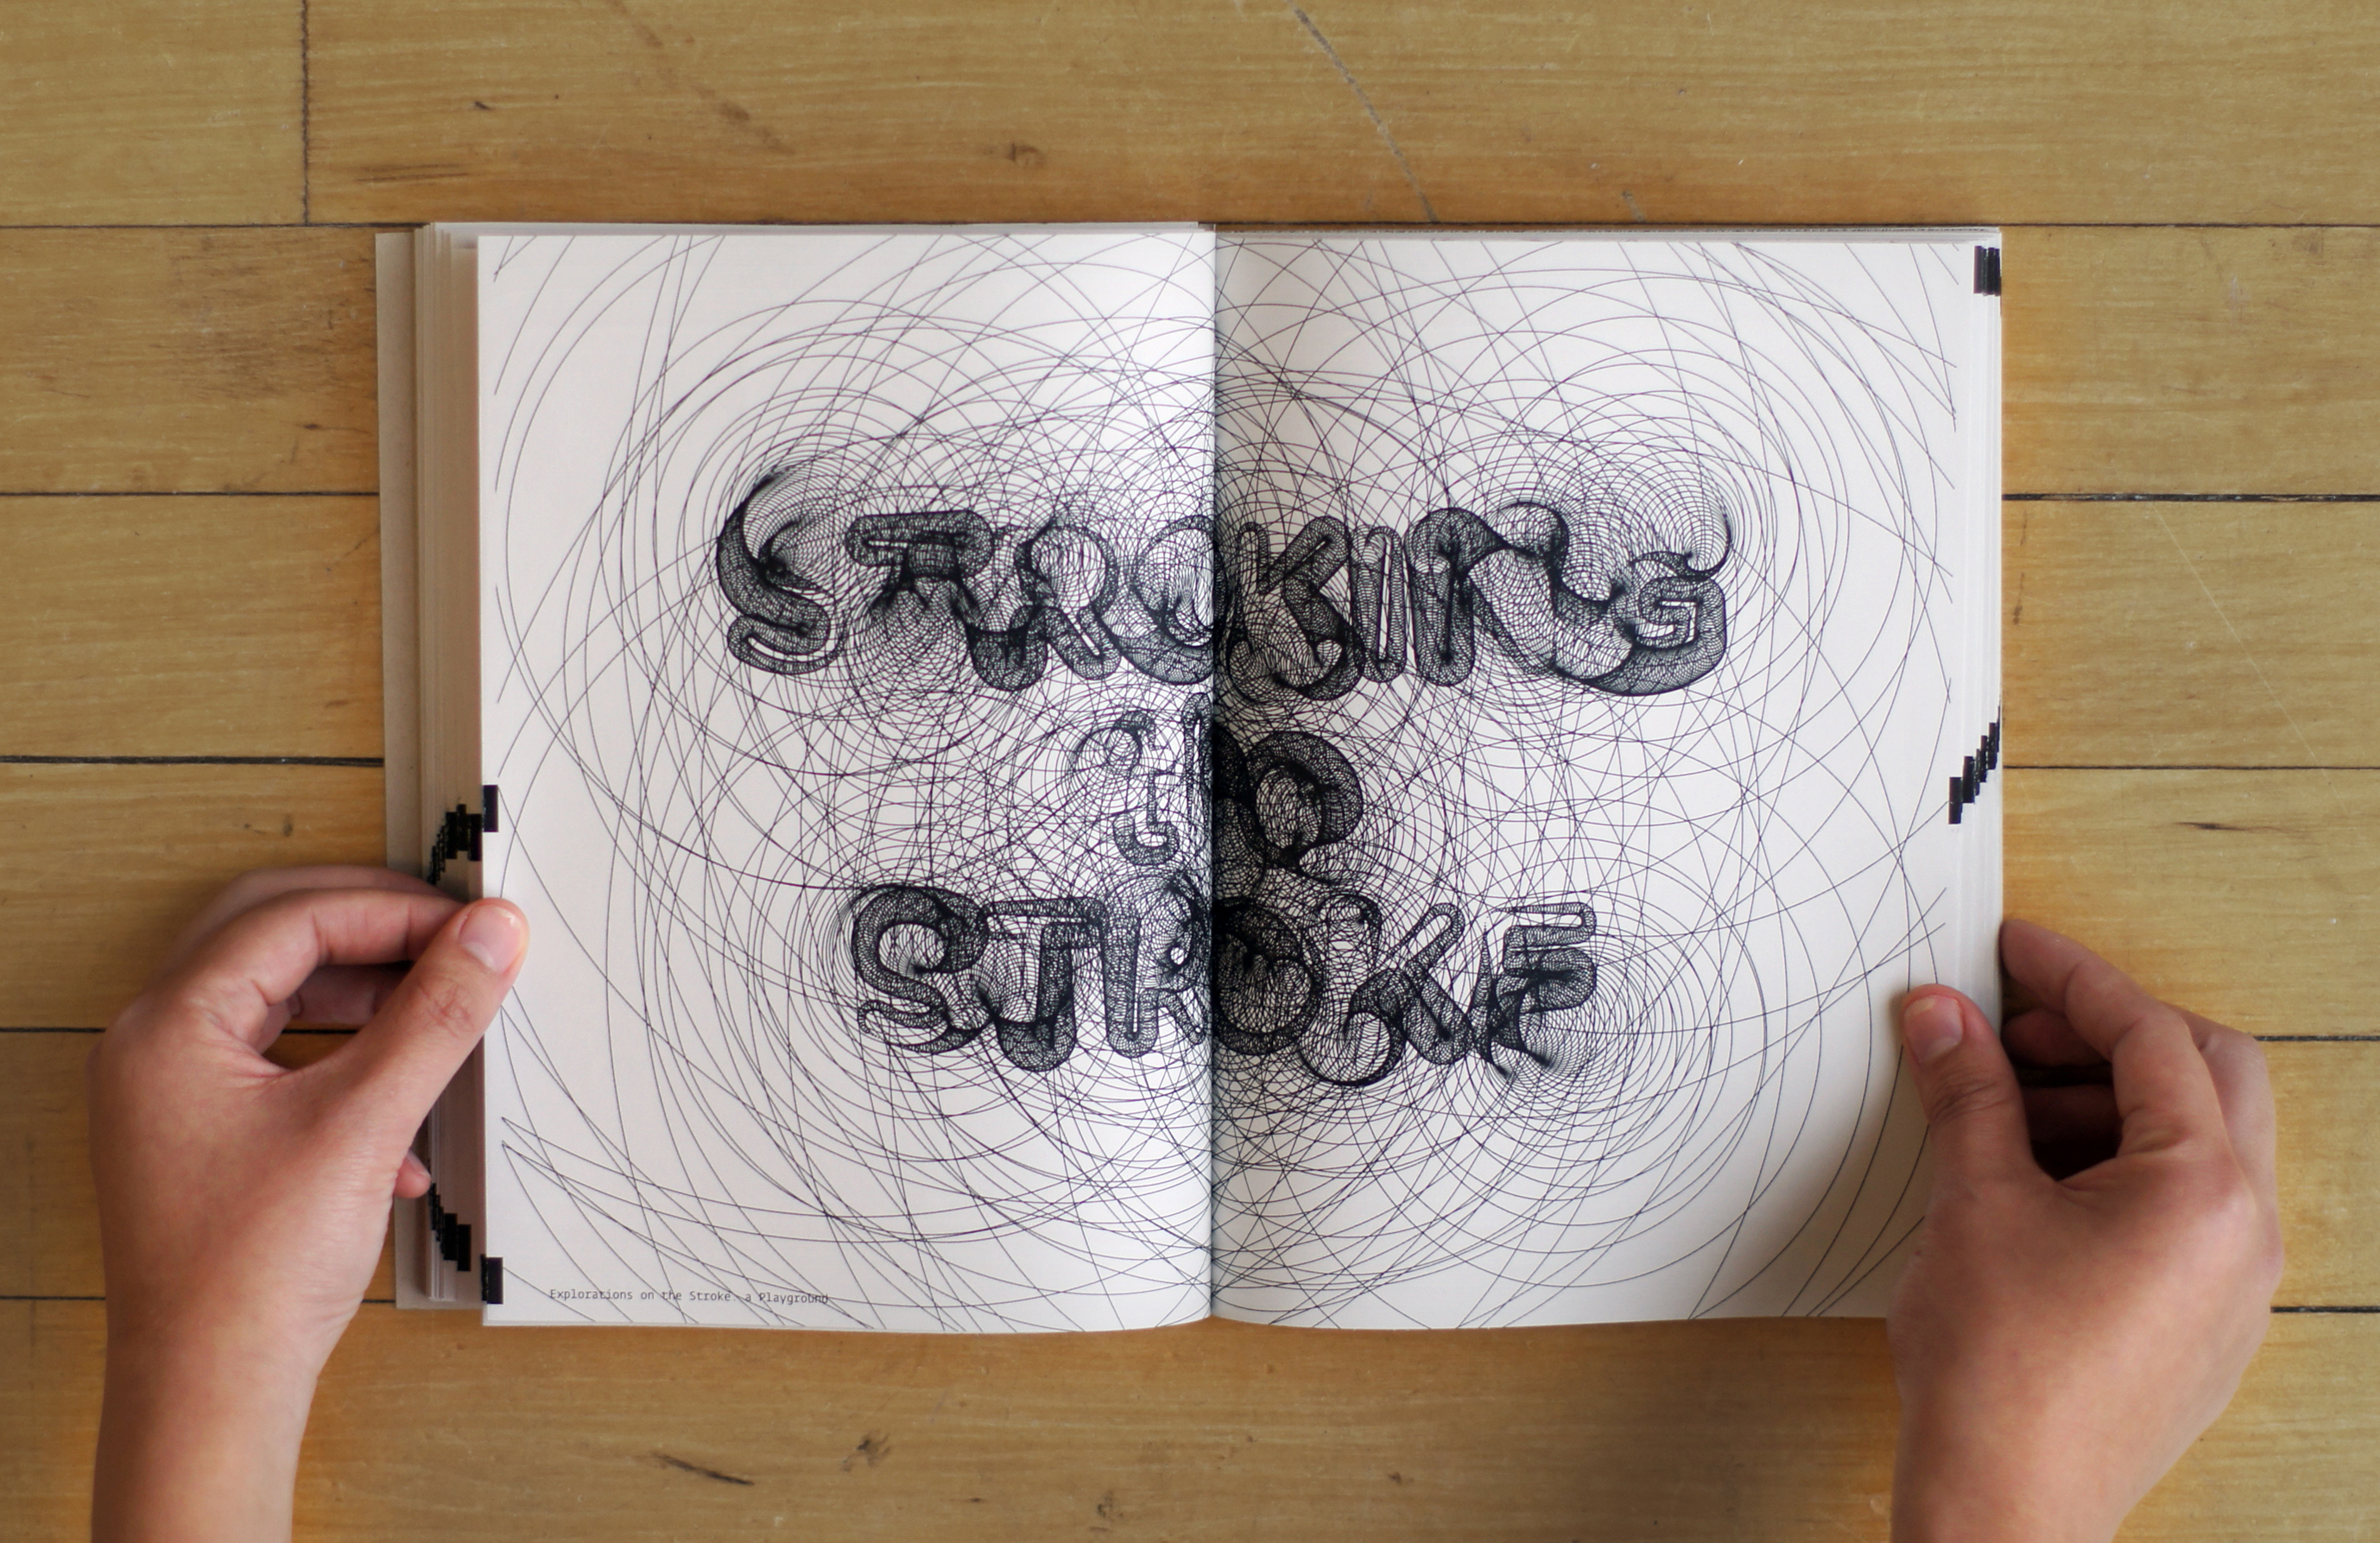 STROKING
STROKE
Explorations on the Stroke - a Playground